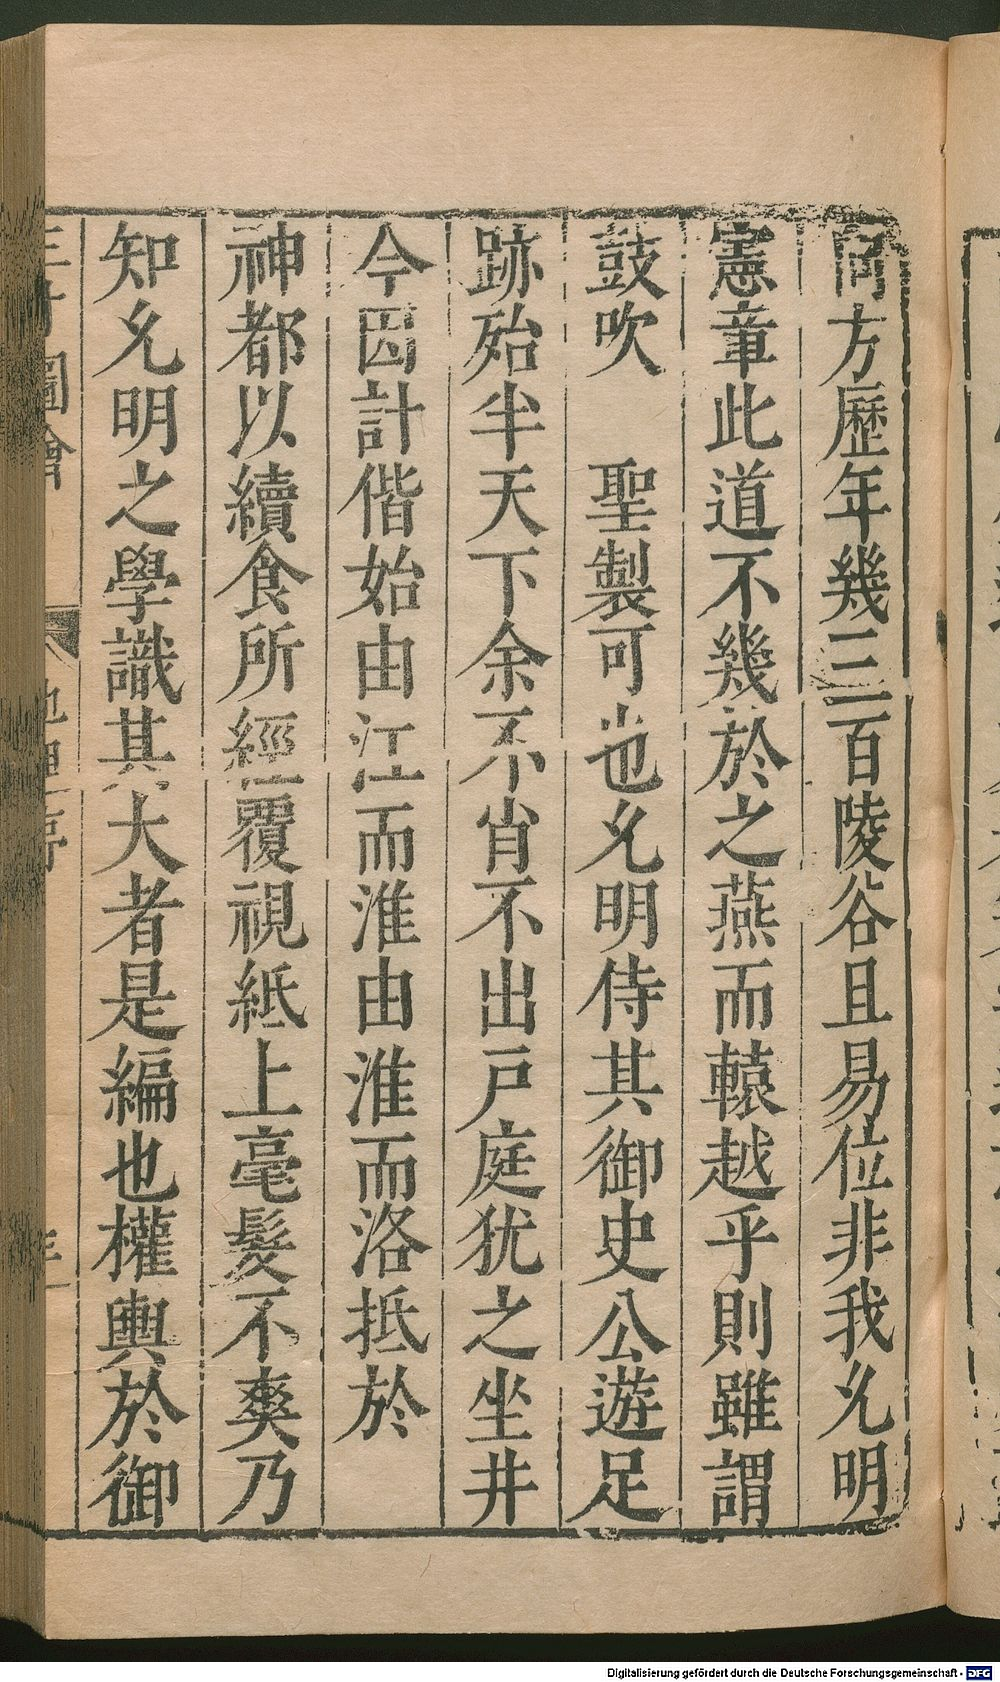 向方歷年幾三百陵谷且易位非我允明
憲章此道不幾於之燕而轅越乎則雖謂
鼓吹　聖製可也允明侍其御史公遊足
跡殆半天下余不肖不出戸庭犹之坐井
今因計偕始由江而淮由淮而洛抵於
神都以續食所經覆視紙上毫髮不爽乃
知允明之學識其大者是編也權輿於御
三才圖會
Digitalisierung gefördert durch die Deutsche Forschungsgemeinschaft - DFG